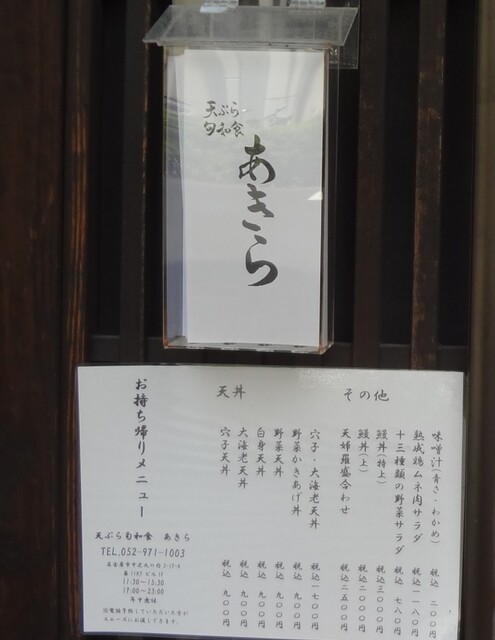 天ぷら
旬和食
あきら
お持ち帰りメニュー
天ぷら旬和食 あきら
TEL.052-971-1003
11:30~15:30
17:00~23:00
年中無休
※電話予約していただいた方が
スムーズにお渡しできます。
天丼
穴子・大海老天丼 税込一七〇〇円
野菜かきあげ丼 税込 九〇〇円
野菜天丼 税込 九〇〇円
白身天丼 税込 九〇〇円
大海老天丼 税込 九〇〇円
穴子天丼 税込 九〇〇円
その他
味噌汁(青さ・わかめ) 税込 二〇〇円
熟成鶏ムネ肉サラダ 税込一一八〇円
十三種類の野菜サラダ 税込 七八〇円
鰻丼(特上) 税込三〇〇〇円
鰻丼(上) 税込二〇〇〇円
天婦羅盛合わせ 税込二五〇〇円